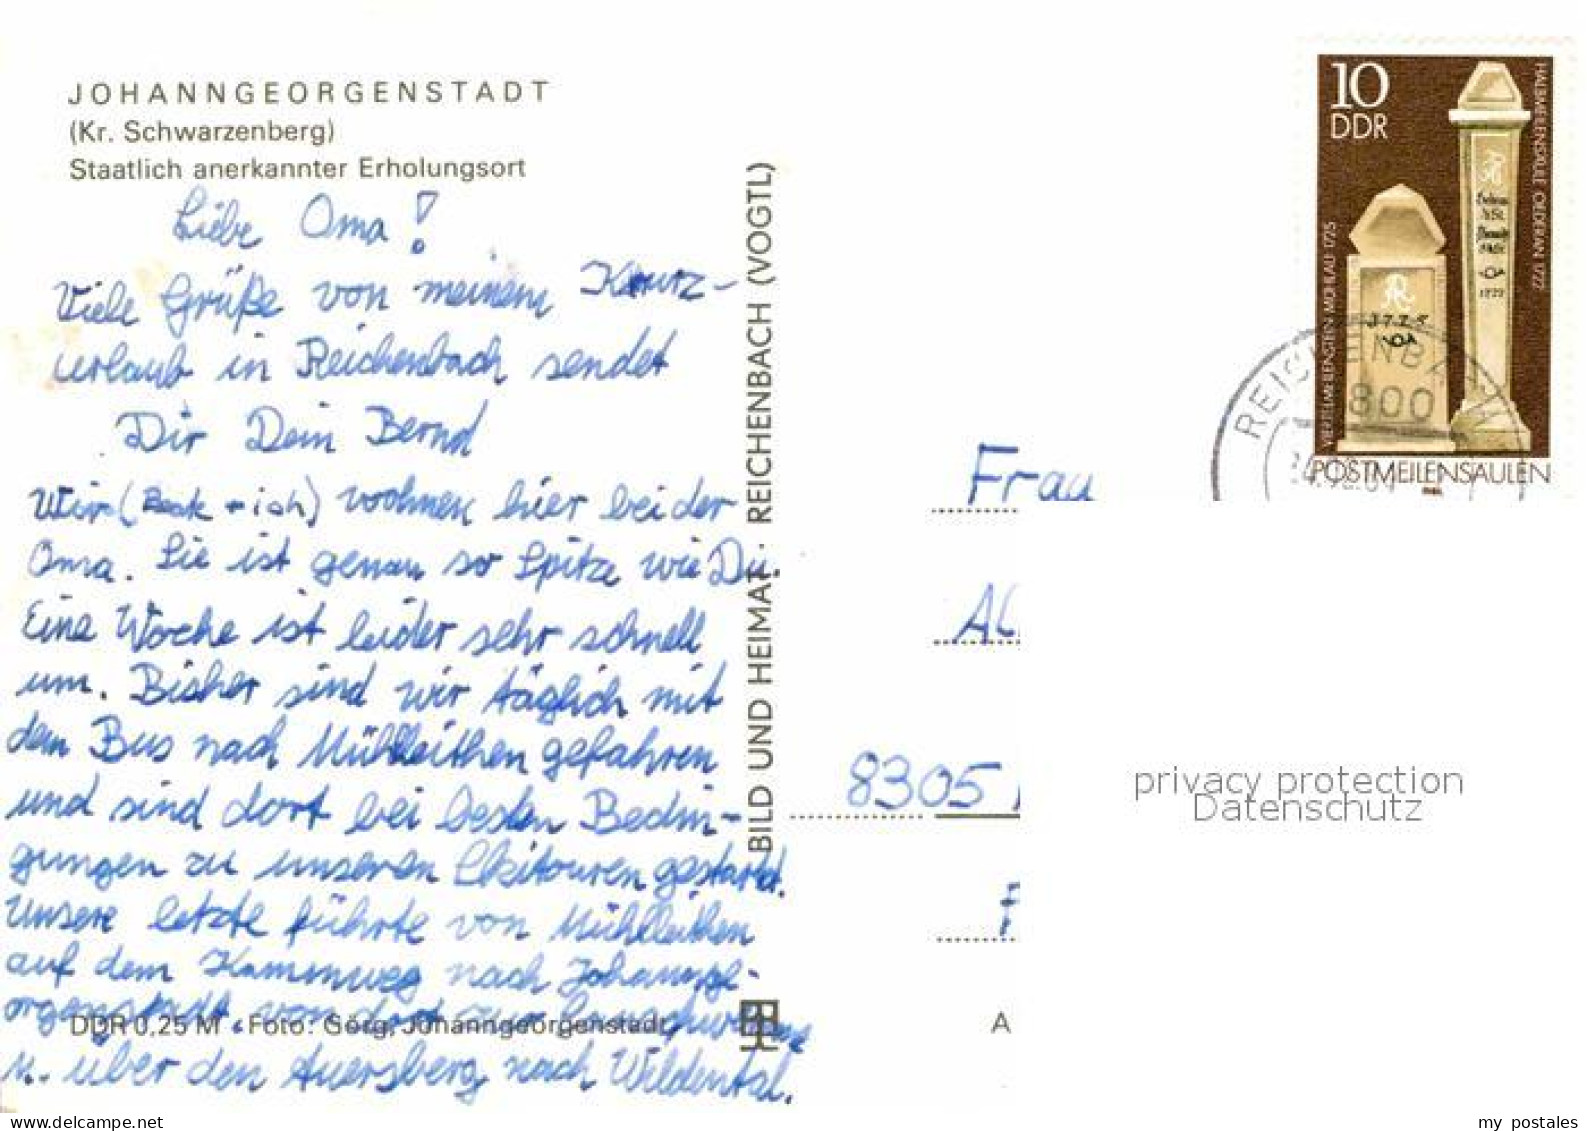 JOHANNGEORGENSTADT
(Kr. Schwarzenberg)
Staatlich anerkannter Erholungsort
Liebe Oma!
Viele Grüße von meinem Kurz-
urlaub in Reichenbach sendet
Dir Dein Bernd
Wir ( + ich) wohnen hier bei der
Oma. Sie ist genau so Spitze wie Du.
Eine Woche ist leider sehr schnell
um. Bisher sind wir täglich mit
dem Bus nach Mühlleithen gefahren
und sind dort bei besten Bedin-
gungen zu unseren Skitouren gestartet.
Unsere letzte führte von Mühlleithen
auf dem Kammweg nach Johannge-
orgenstadt von dort zur
u. über den Auersberg nach Wildental.
DDR 0,25 M · Foto: Görg, Johanngeorgenstadt
BILD UND HEIMAT · REICHENBACH (VOGTL)
10
DDR
HALBMEILENSÄULE OEDERAN 1722
VIERTELMEILENSTEIN MÜHLAU 1725
1725
1722
POSTMEILENSÄULEN
REICHENBACH
9800
Frau
Al
8305
A
privacy protection
Datenschutz
delcampe.net
my_postales